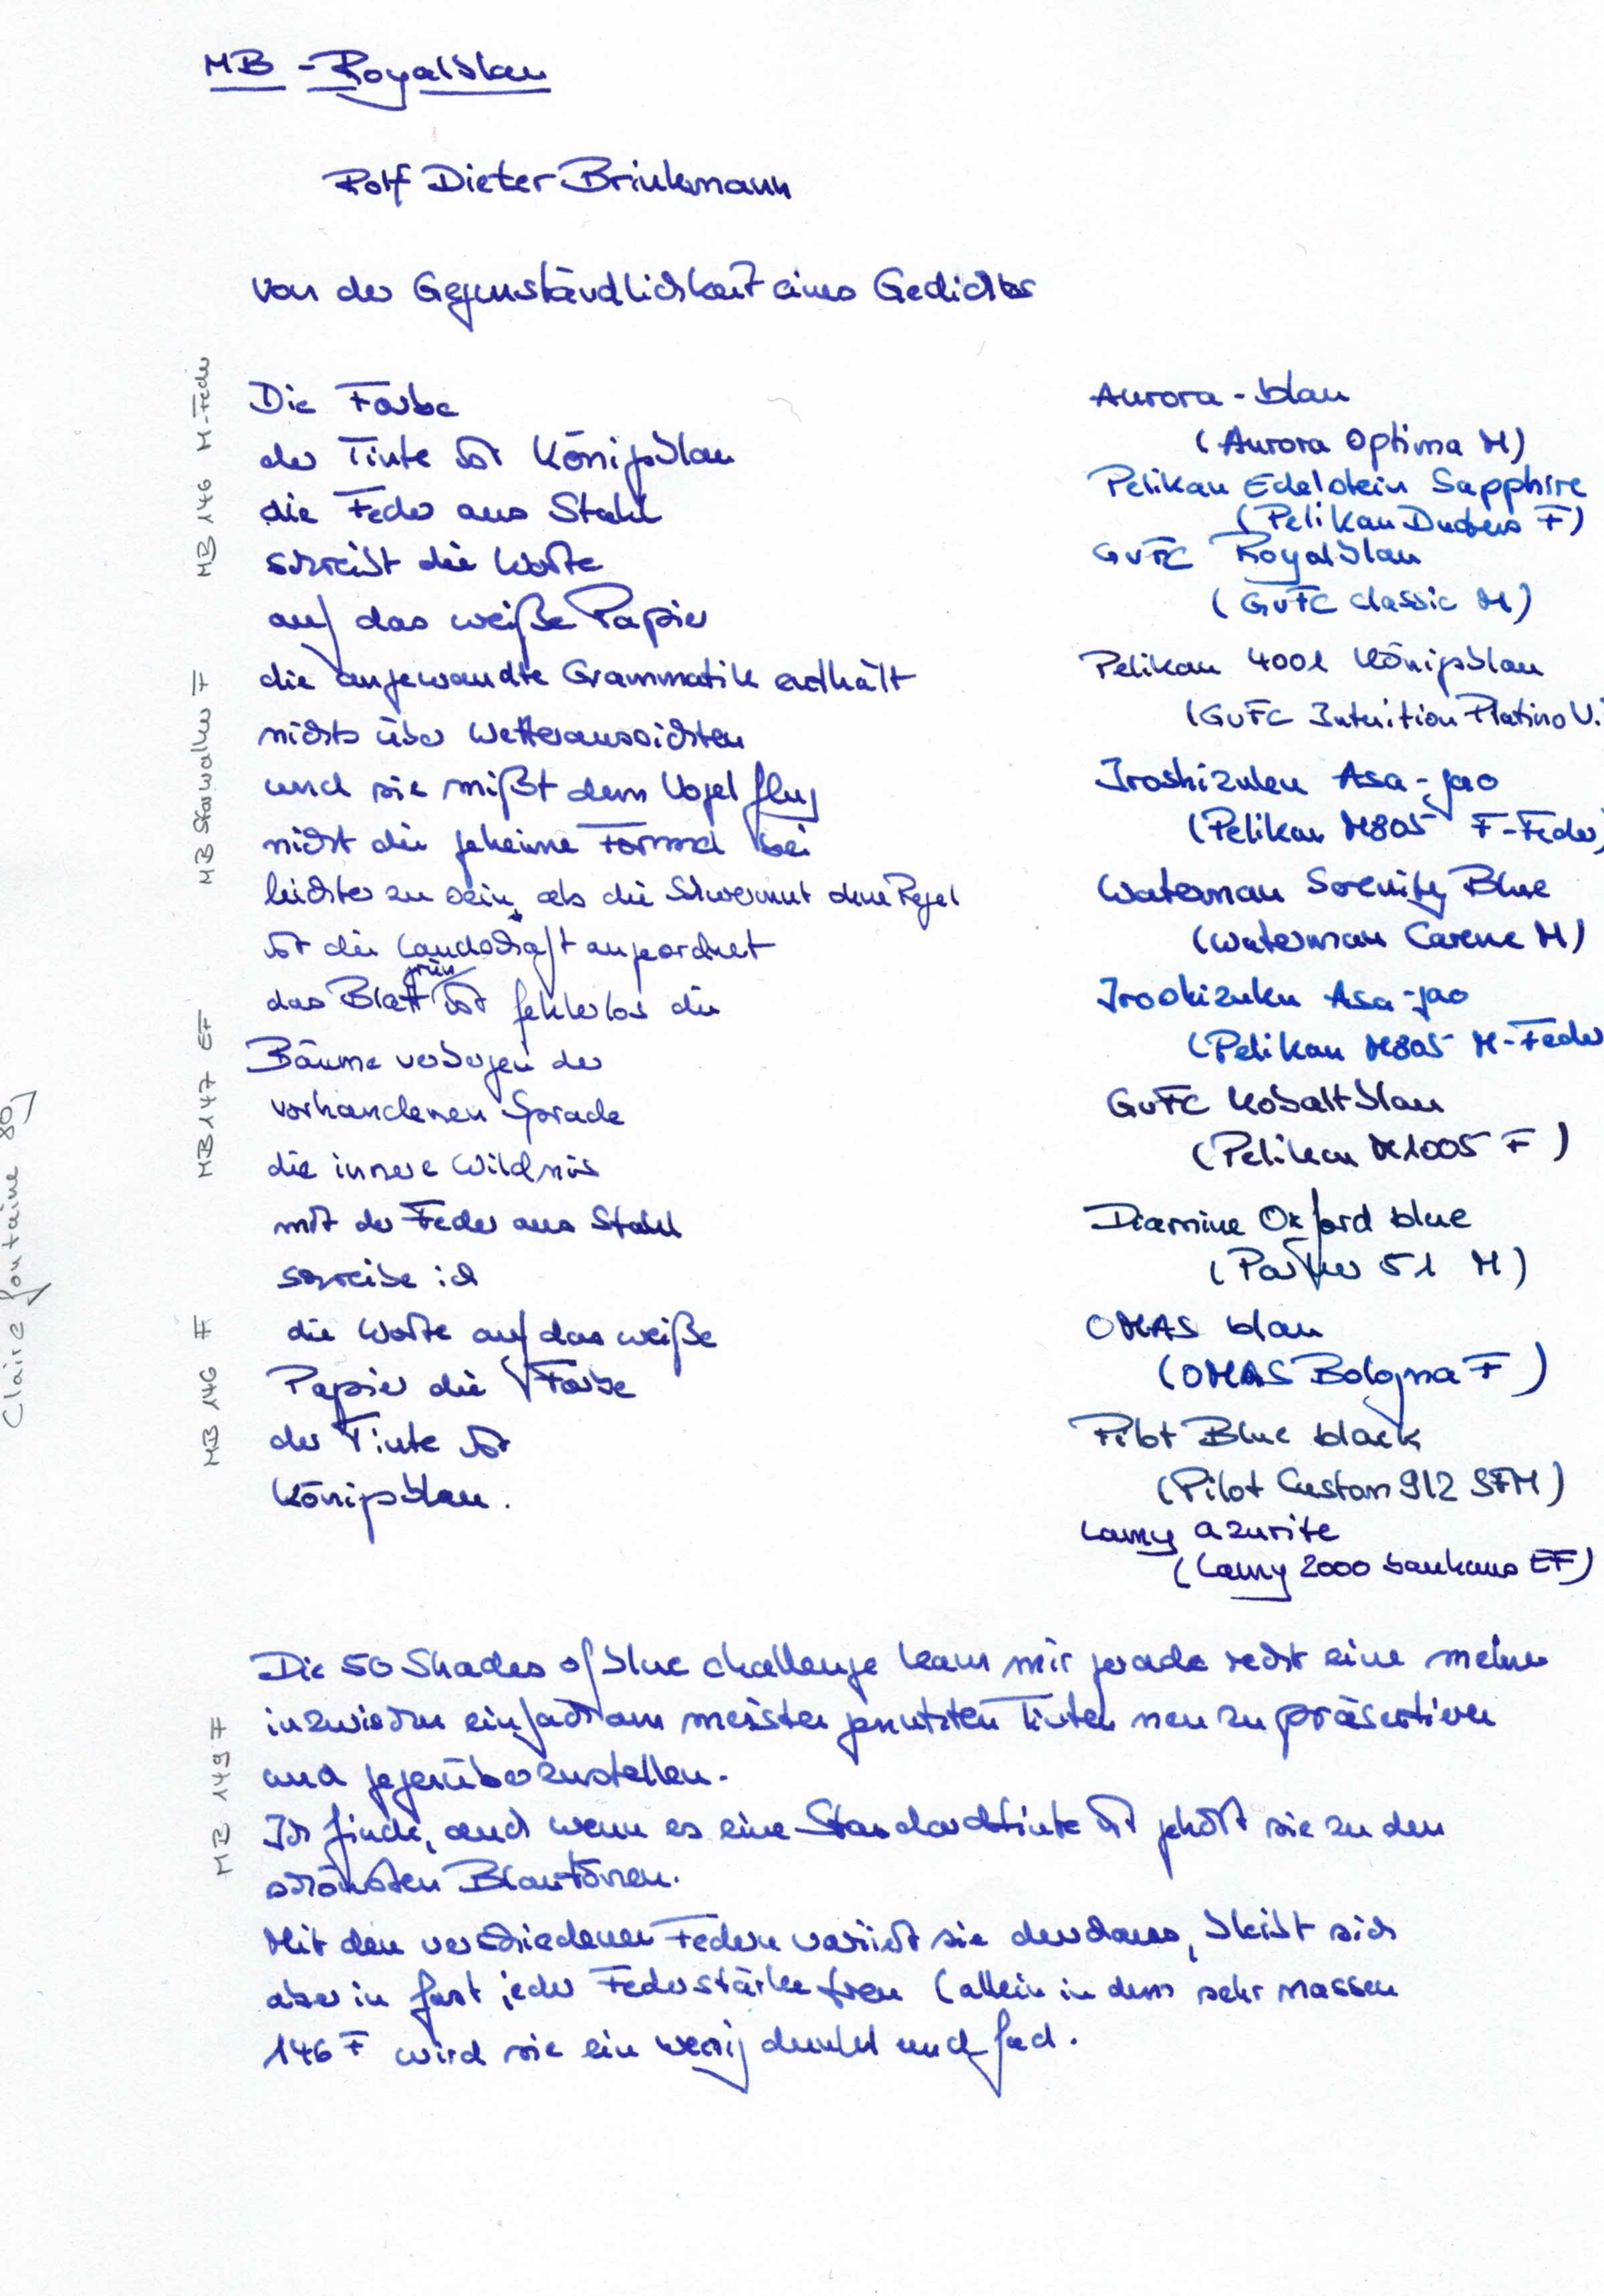 MB - Royalblau
Rolf Dieter Brinkmann
Von der Gegenständlichkeit eines Gedichtes
Die Farbe
der Tinte ist Königsblau
die Feder aus Stahl
schreibt die Worte
auf das weiße Papier
die angewandte Grammatik enthält
nichts über Wetteraussichten
und sie mißt dem Vogelflug
nicht die geheime Formel bei
leichter zu sein, als die Schwermut ohne Regel
ist die Landschaft angeordnet
das Blatt grün ist fehlerlos die
Bäume verbergen der
vorhandenen Sprache
die innere Wildnis
mit der Feder aus Stahl
schreibe ich
die Worte auf das weiße
Papier die Farbe
der Tinte ist
Königsblau.
MB 146 M-Feder
MB Starwalker F
MB 147 EF
MB 146 F
MB 149 F
Clairefontaine 80g
Aurora - blau
(Aurora Optima M)
Pelikan Edelstein Sapphire
(Pelikan Ductus F)
GvFC Royalblau
(GvFC Classic M)
Pelikan 4001 Königsblau
(GvFC Intuition Platino
Iroshizuku Asa-gao
(Pelikan M805 F-Feder)
Waterman Serenity Blue
(Waterman Carene M)
Iroshizuku Asa-gao
(Pelikan M805 M-Feder
GvFC Kobaltblau
(Pelikan M1005 F)
Diamine Oxford blue
(Parker 51 M)
OMAS blau
(OMAS Bologna F)
Pilot Blue black
(Pilot Custom 912 SFM)
Lamy azurite
(Lamy 2000 bauhaus EF)
Die 50 Shades of blue challenge kam mir gerade recht eine meiner
inzwischen einfach am meisten genutzten Tinten neu zu präsentieren
und gegenüberzustellen.
Ich finde, auch wenn es eine Standardtinte ist gehört sie zu den
schönsten Blautönen.
Mit den verschiedenen Federn variiert sie durchaus, bleibt sich
aber in fast jeder Federstärke treu (allein in dem sehr nassen
146 F wird sie ein wenig dunkel und fad.